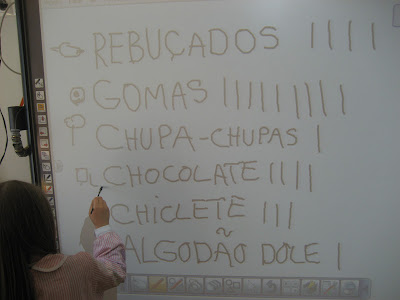 REBUÇADOS ||||
GOMAS |||||||||
CHUPA-CHUPAS |
CHOCOLATE ||||
CHICLETE |||
ALGODÃO DOCE |